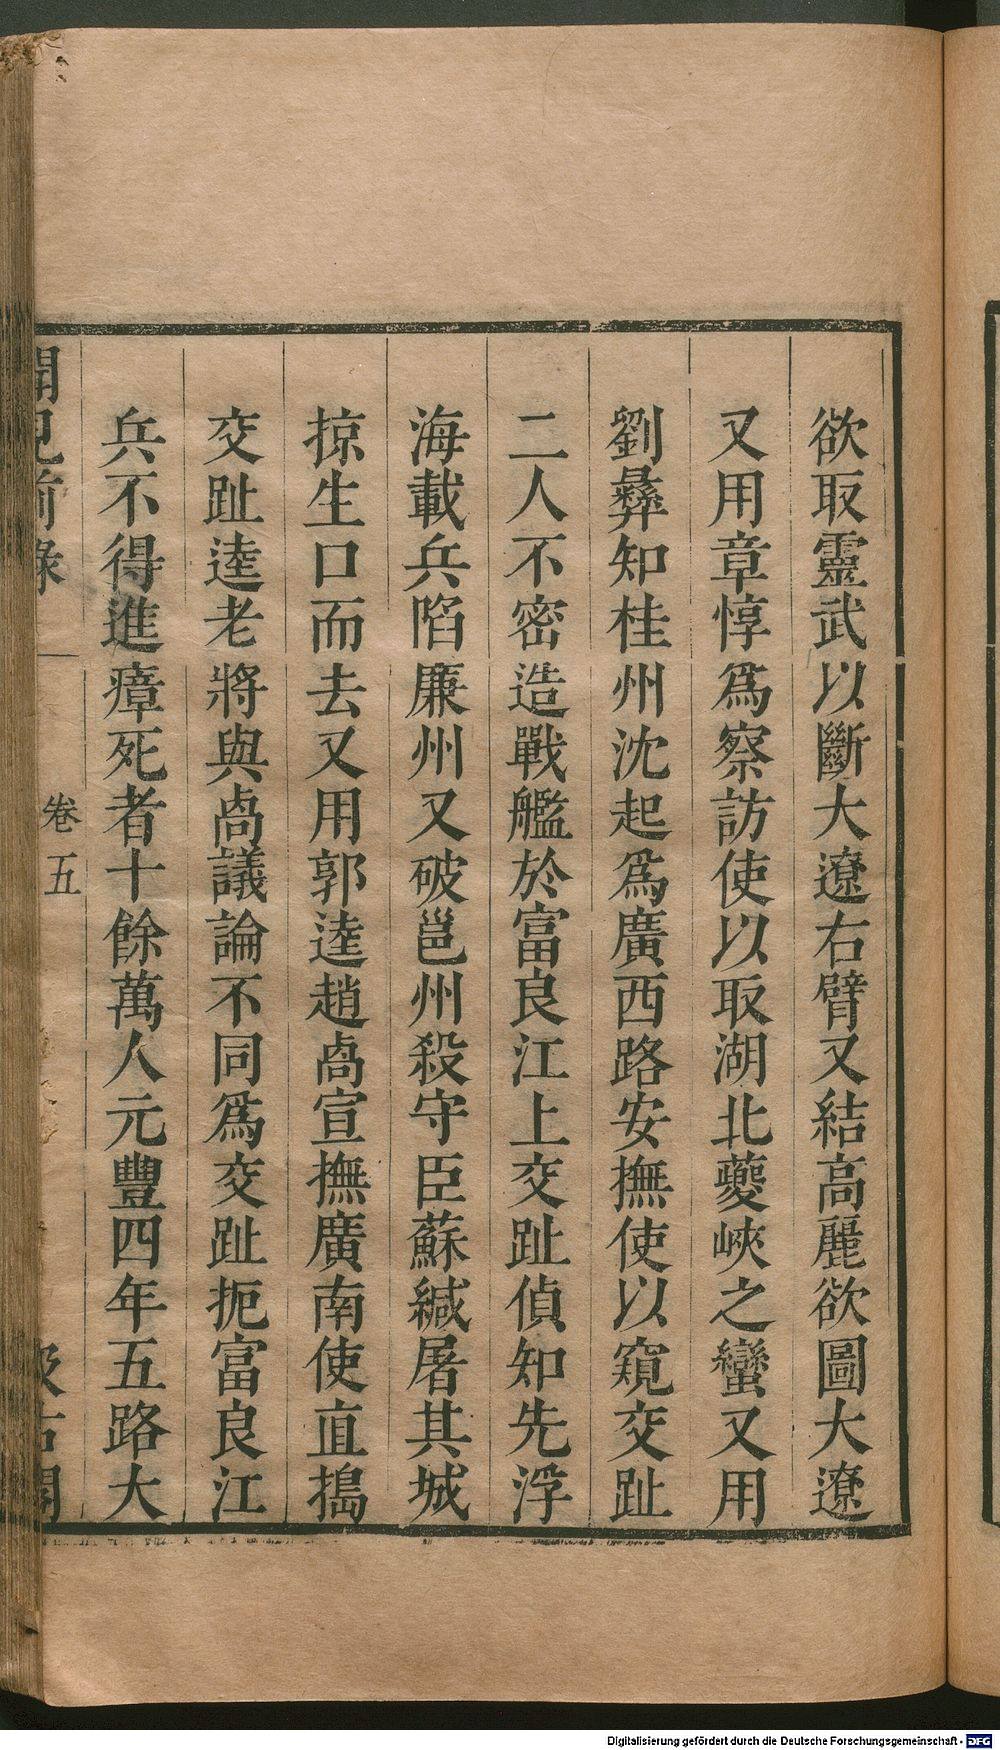 欲取靈武以斷大遼右臂又結高麗欲圖大遼
又用章惇爲察訪使以取湖北夔峽之蠻又用
劉彝知桂州沈起爲廣西路安撫使以窺交趾
二人不密造戰艦於富良江上交趾偵知先浮
海載兵陷廉州又破邕州殺守臣蘇緘屠其城
掠生口而去又用郭逵趙卨宣撫廣南使直搗
交趾逵老將與卨議論不同爲交趾扼富良江
兵不得進瘴死者十餘萬人元豐四年五路大
聞見前錄 卷五 汲古閣
Digitalisierung gefördert durch die Deutsche Forschungsgemeinschaft - DFG